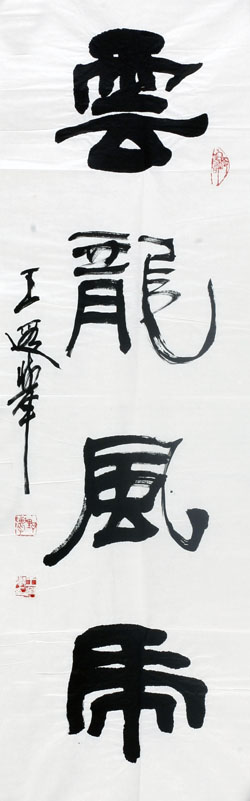 雲龍風虎
王遐舉